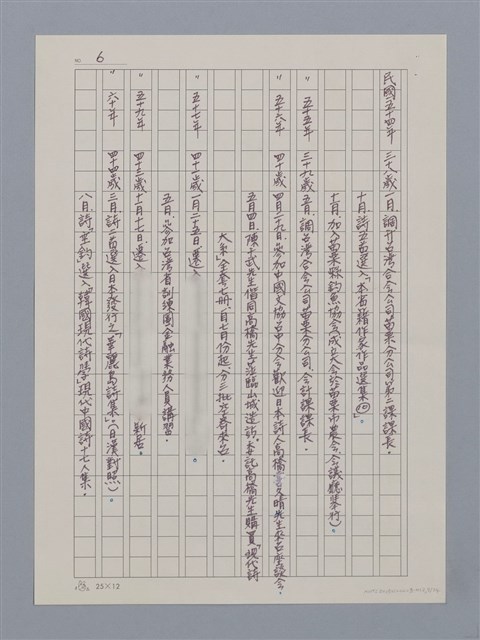 NO 6
民國五十四年 三十八歲 一月、調升台灣合會公司苗栗分公司第二課課長。
十月、詩五首選入「本省籍作家作品選集⑩」。
十一月、加入苗栗縣釣魚協會(成立大會於苗栗市農會會議廳舉行)。
〃 五十五年 三十九歲 五月、調台灣合會公司苗栗分公司會計課課長。
〃 五十六年 四十歲 四月二十九日、參加中國文協台中分會歡迎日本詩人高橋喜久晴先生來台座談會。
五月四日、陳千武先生偕同高橋先生蒞臨山城造訪、委託高橋先生購買「現代詩
大系」全套七冊、一月七月份起分三批在寄來台。
〃 五十七年 四十一歲 一月二十五日遷入
五月、參加台灣省訓練團金融業務人員講習。
〃 五十九年 四十三歲 十一月十七日遷入 新居。
〃 六十年 四十四歲 三月、詩二首選入日本發行之「華麗島詩集」(日漢對照)。
八月、詩「垂釣」選入「韓國現代詩學」現代中國詩十七人集。
25×12